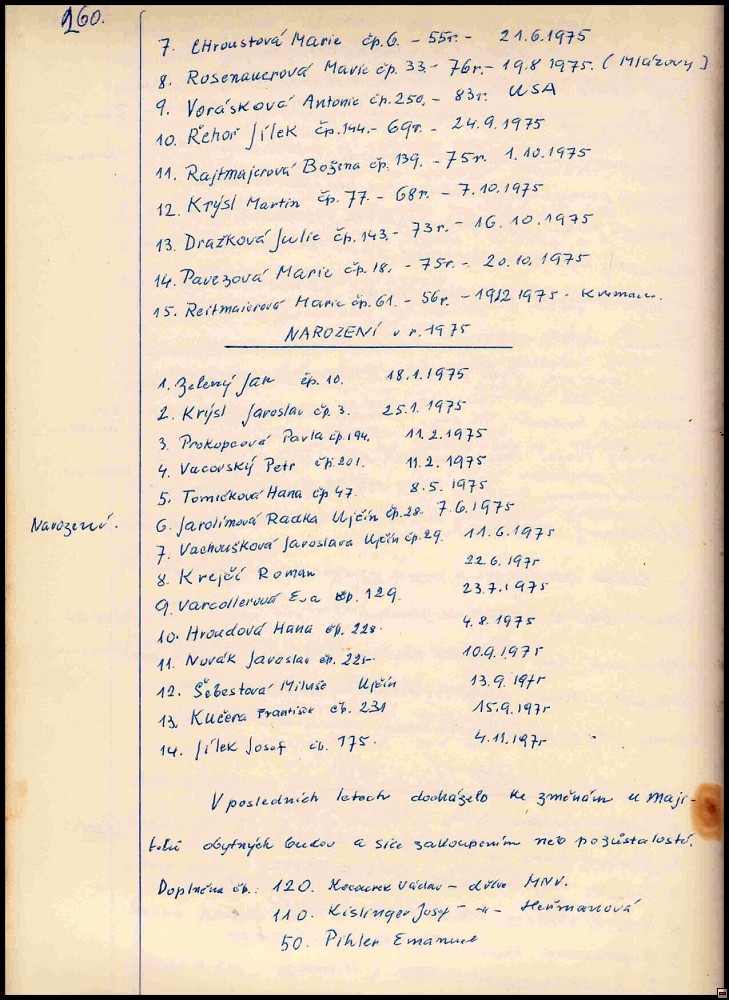 260.
7. Chroustová Marie čp. 6. - 55r. - 21.6.1975
8. Rosenauerová Marie čp. 33. - 76r. - 19.8 1975. (Mlázovy)
9. Vorásková Antonie čp. 250. - 83r. USA
10. Řehoř Jílek čp. 144. - 69r. - 24.9.1975
11. Rajtmajerová Božena čp. 139. - 75r. 1.10.1975
12. Krýsl Martin čp. 77. - 68r. - 7.10.1975
13. Dražková Julie čp. 143. - 73r. - 16.10.1975
14. Pavezová Marie čp. 18. - 75r. - 20.10.1975
15. Reitmaierová Marie čp. 61. - 56r. - 19.12 1975 -
NAROZENÍ v r. 1975
1. Zelený Jan čp. 10. 18.1.1975
2. Krýsl Jaroslav čp. 3. 25.1.1975
3. Prokopcová Pavla čp. 194. 11.2.1975
4. Vacovský Petr čp. 201. 11.2.1975
5. Tomičková Hana čp 47. 8.5.1975
Narození.
6. Jarolímová Radka Ujčín čp. 28. 7.6.1975
7. Vachoušková Jaroslava Ujčín čp. 29. 11.6.1975
8. Krejčí Roman 22.6.1975
9. Varcollerová Eva čp. 129. 23.7.1975
10. Hroudová Hana čp. 228. 4.8.1975
11. Novák Jaroslav čp. 225. 10.9.1975
12. Šebestová Miluše Ujčín 13.9.1975
13. Kučera František čp. 231 15.9.1975
14. Jílek Josef čp. 175. 4.11.1975
V posledních letech docházelo ke změnám u maji-
telů obytných budov a sice zakoupením neb pozůstalostí.
Doplněna čp.: 120. Václav - dříve MNV.
110. Kislinger Josef - " - Heřmanová
50. Pihler Emanuel